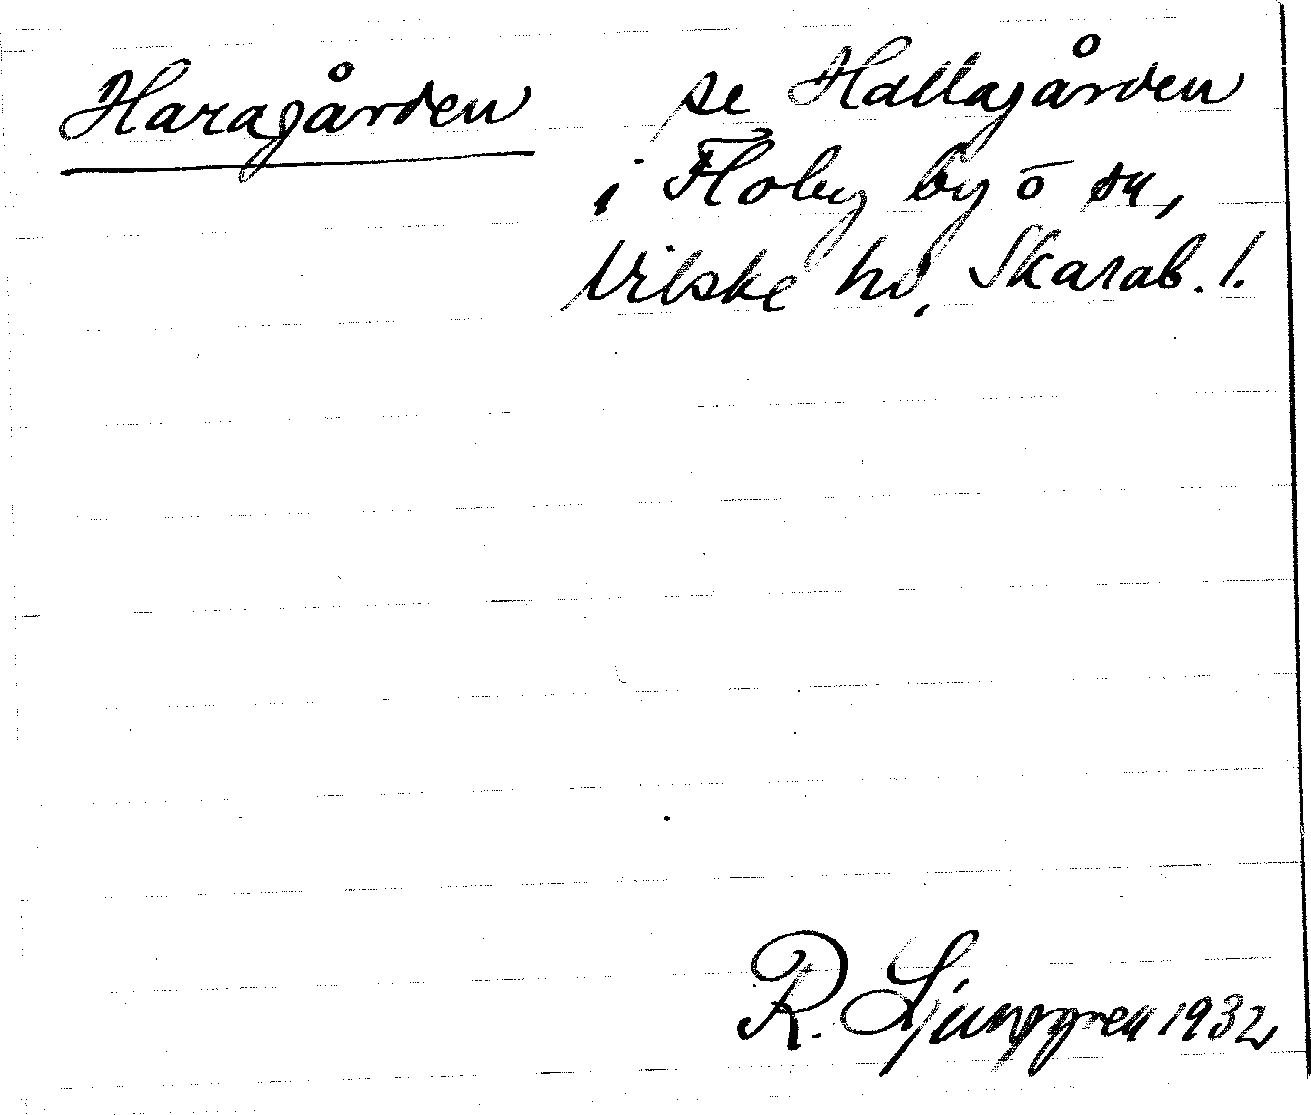 Haragården se Hallagården
i Floby by o sn,
Vilske hd, Skarab. l.
R. Ljunggren 1932